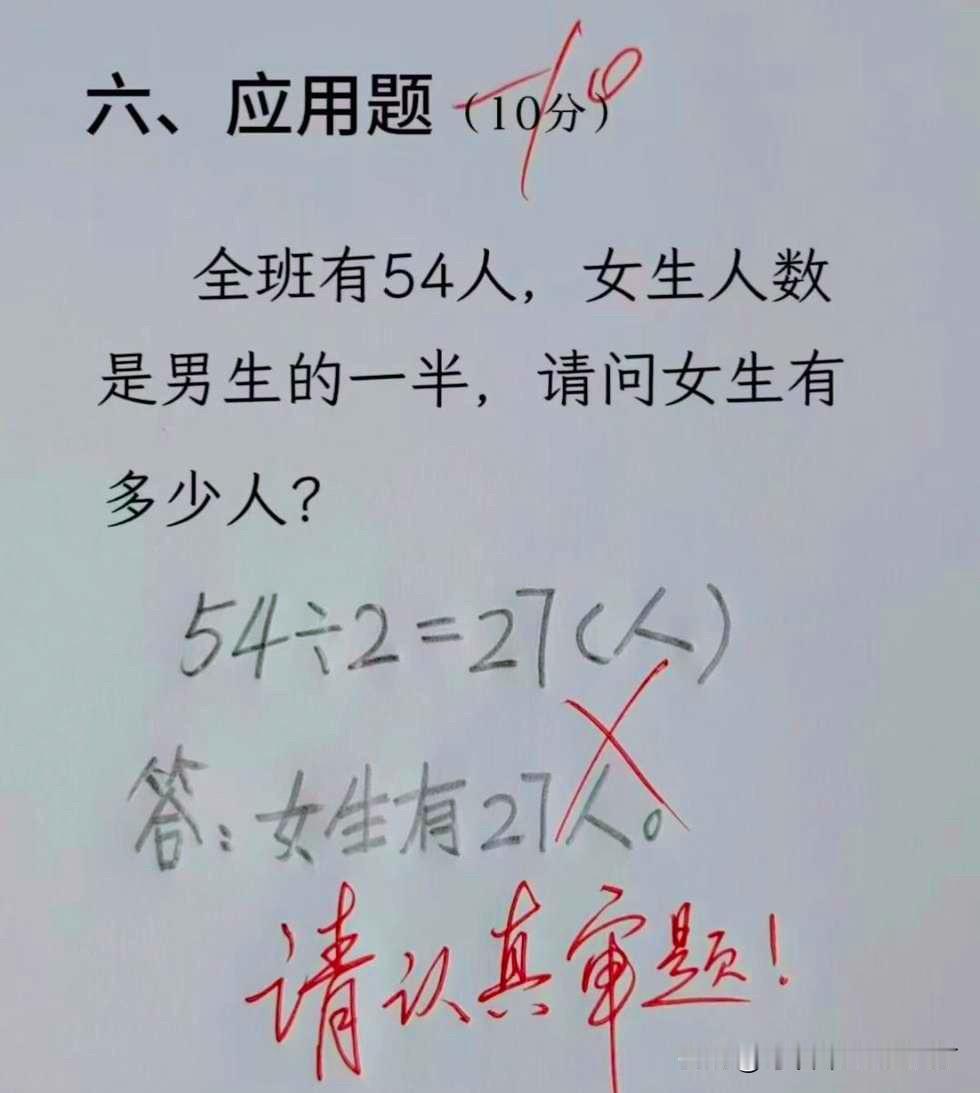 六、应用题（10分） -10
全班有54人，女生人数
是男生的一半，请问女生有
多少人？
54÷2=27(人)
答：女生有27人。
请认真审题！